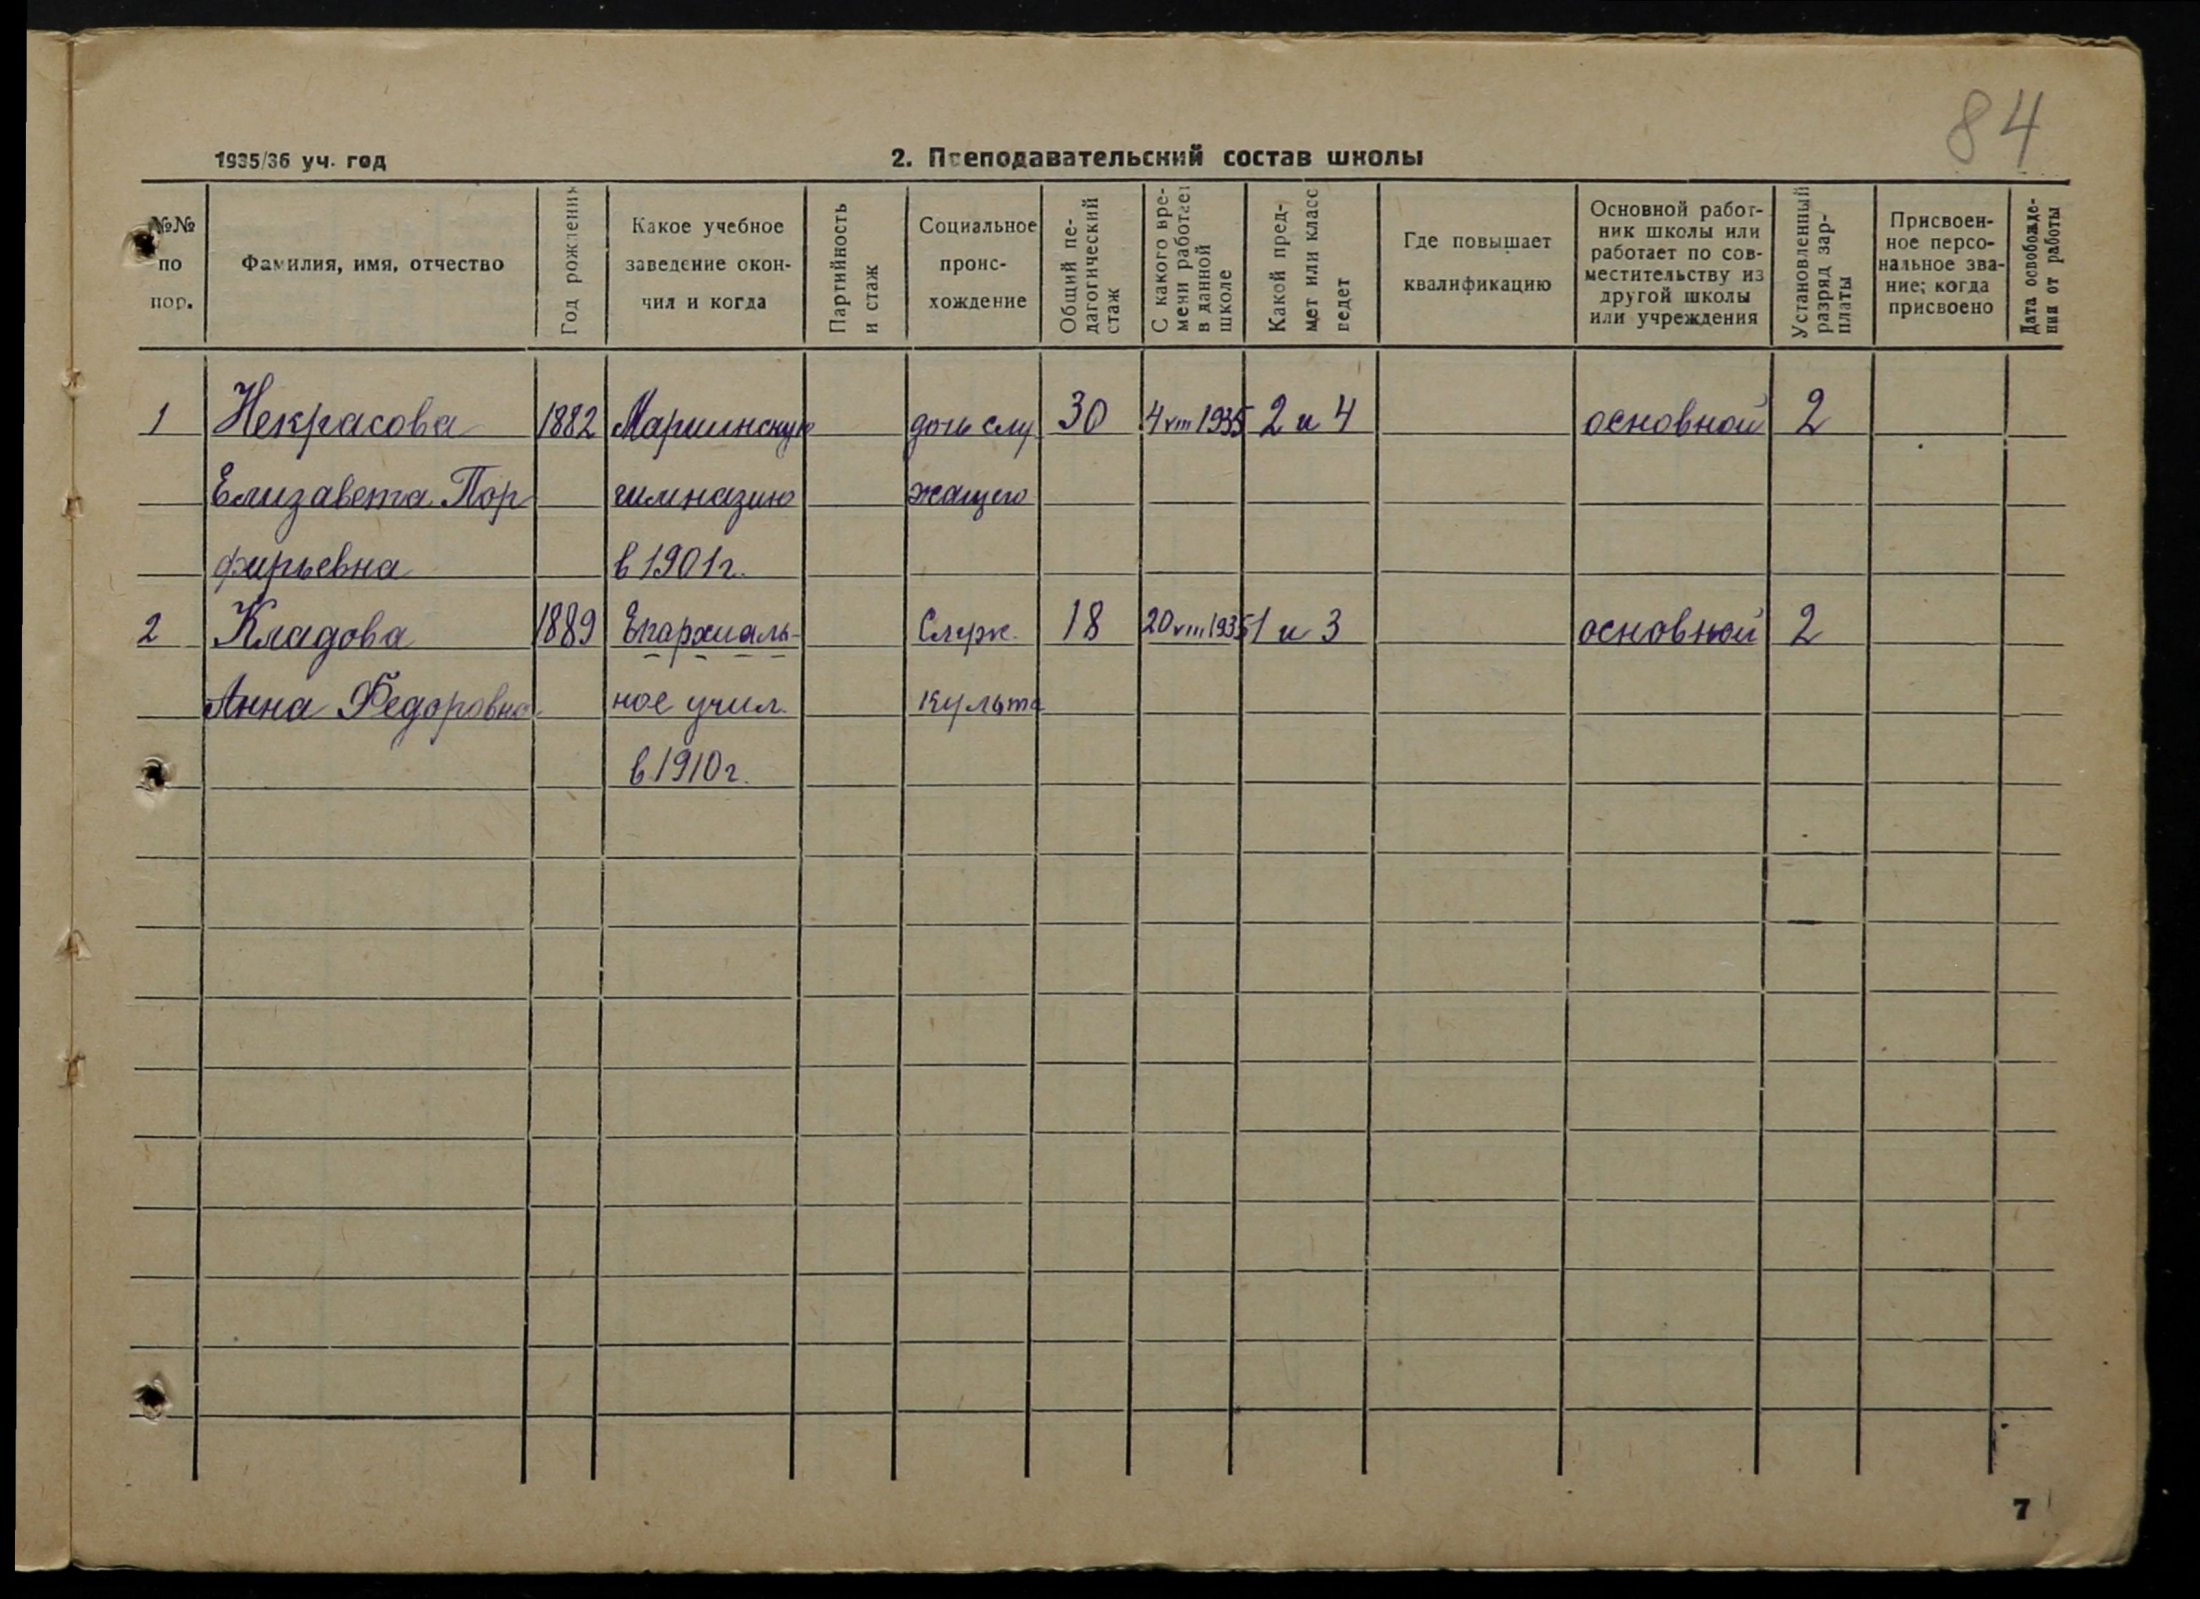 84
1935/36 уч. год
2. Преподавательский состав школы
№№ по пор.
Фамилия, имя, отчество
Год рождения
Какое учебное заведение окончил и когда
Партийность и стаж
Социальное происхождение
Общий педагогический стаж
С какого времени работает в данной школе
Какой предмет или класс ведет
Где повышает квалификацию
Основной работник школы или работает по совместительству из другой школы или учреждения
Установленный разряд зарплаты
Присвоенное персональное звание; когда присвоено
Дата освобождения от работы
1 Некрасова 1882 Мариинскую дочь слу 30 4 VIII 1935 2 и 4 основной 2
Елизавета Пор гимназию жащего
фирьевна в 1901 г.
2 Кладова 1889 Епархиаль- Служ. 18 20 VIII 1935 1 и 3 основной 2
Анна Федоровна ное учил. культа
в 1910 г.
7